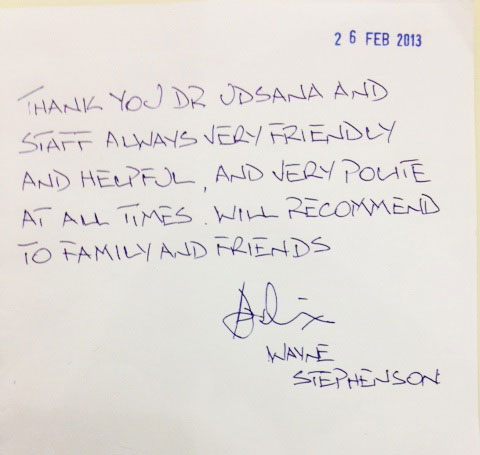 26 FEB 2013
THANK YOU DR UDSANA AND
STAFF ALWAYS VERY FRIENDLY
AND HELPFUL, AND VERY POLITE
AT ALL TIMES. WILL RECOMMEND
TO FAMILY AND FRIENDS
WAYNE
STEPHENSON